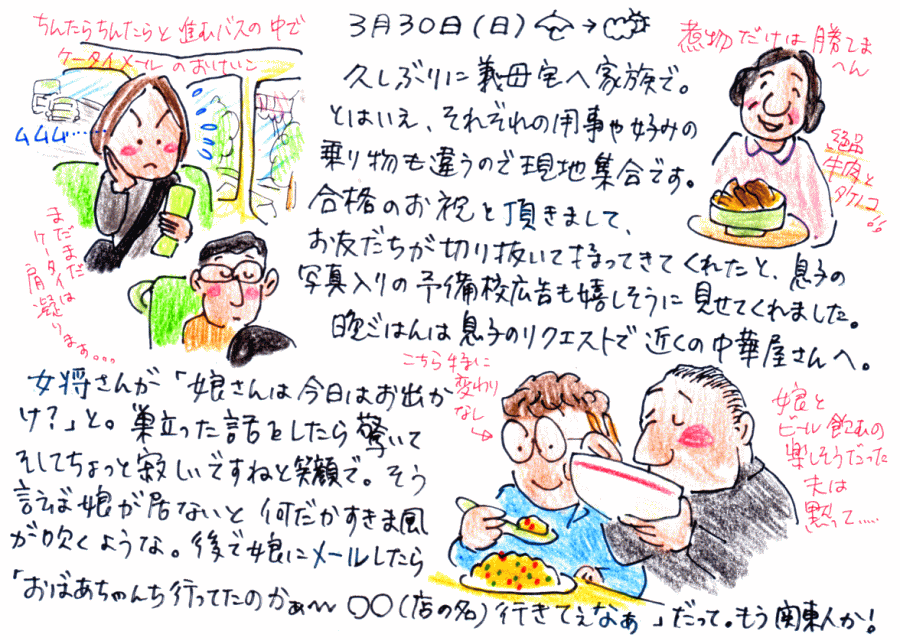 3月30日(日)
久しぶりに義母宅へ家族で。
とはいえ、それぞれの用事や好みの
乗り物も違うので現地集合です。
合格のお祝と頂きまして、
お友だちが切り抜いて持ってきてくれたと、息子の
写真入りの予備校広告も嬉しそうに見せてくれました。
晩ごはんは息子のリクエストで近くの中華屋さんへ。
女将さんが「娘さんは今日はお出か
け?」と。巣立った話をしたら驚いて
そしてちょっと寂しいですねと笑顔で。そう
言えば娘が居ないと何だかすきま風
が吹くような。後で娘にメールしたら
「おばあちゃんち行ってたのかぁ〜〇〇(店の名)行きてぇなぁ」だって。もう関東人か!
ちんたらちんたらと進むバスの中で
ケータイメールのおけいこ
ムムム……
まだまだ
ケータイは
肩凝りまぁ。。。
煮物だけは勝てま
へん
絶品
牛肉と
タケノコ!!
こちら特に
変わり
なし
娘と
ビール飲むの
楽しそうだった
夫は
黙って.....